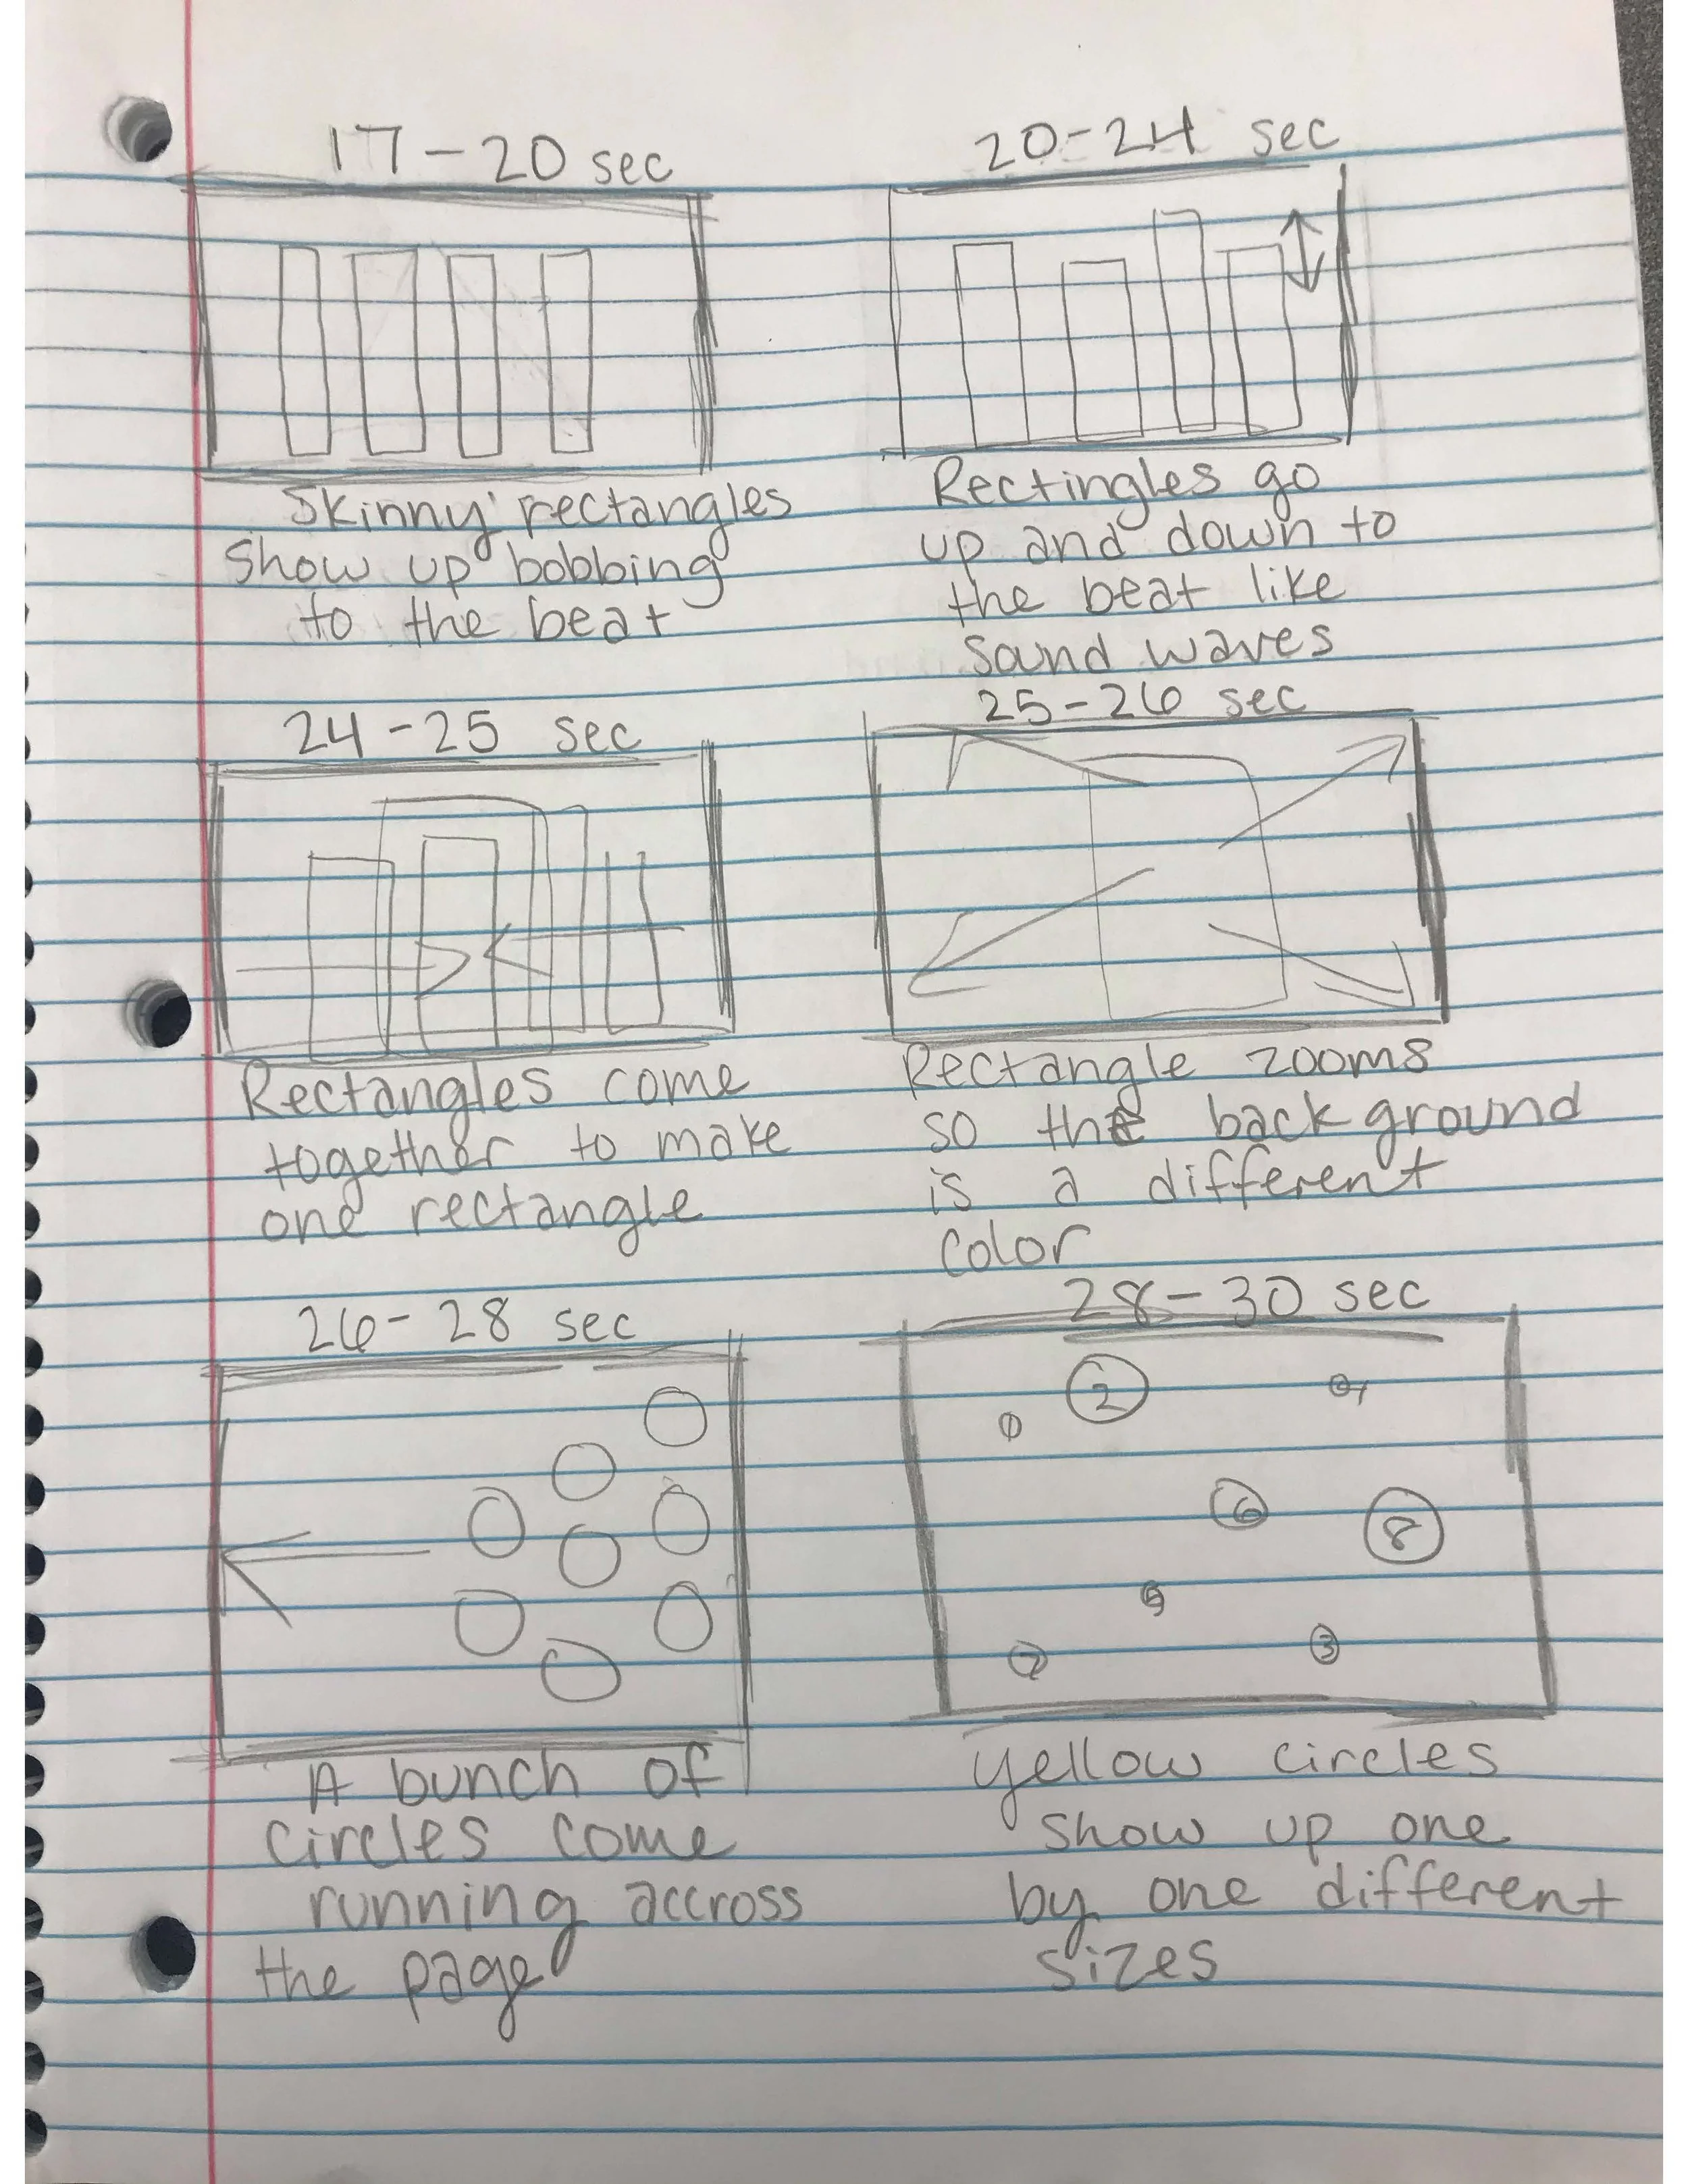 17-20 sec
Skinny rectangles
show up bobbing
to the beat
20-24 sec
Rectingles go
up and down to
the beat like
sound waves
24-25 sec
Rectangles come
together to make
one rectangle
25-26 sec
Rectangle zooms
so the background
is a different
color
26-28 sec
A bunch of
circles come
running accross
the page
28-30 sec
1
2
4
6
8
5
7
3
yellow circles
show up one
by one different
sizes